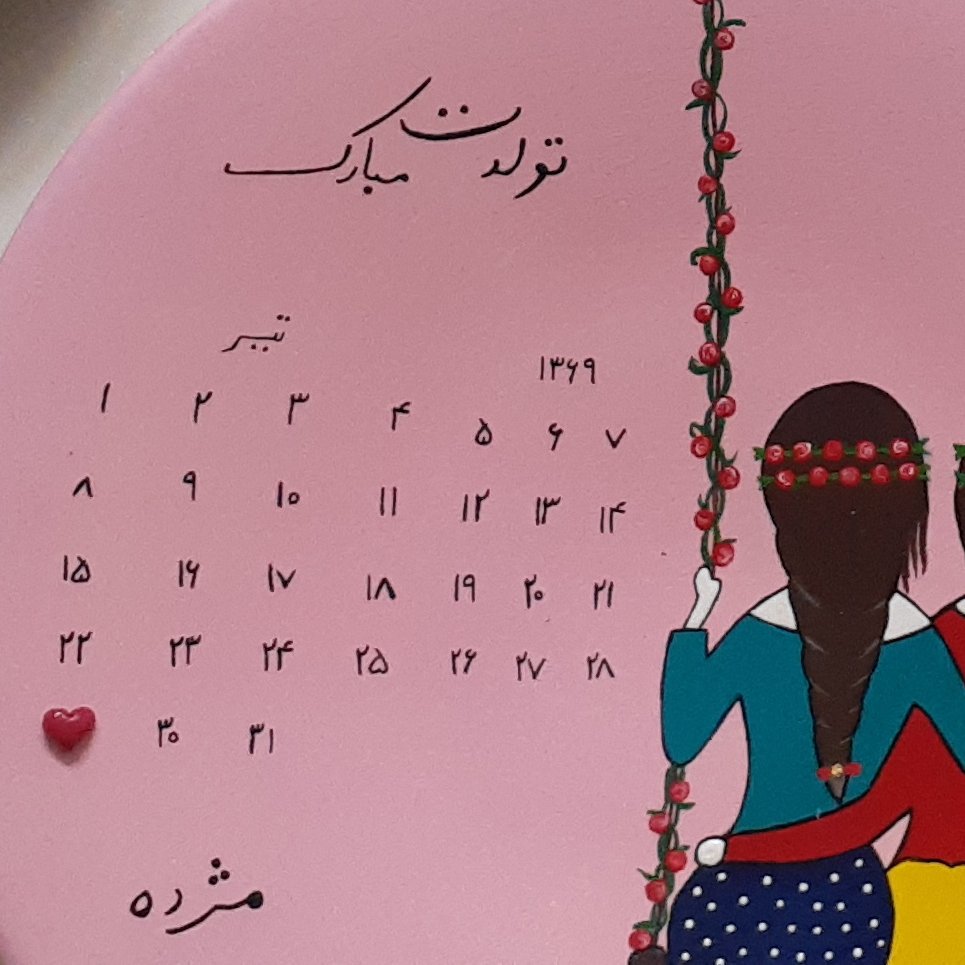 تولدت مبارک
تیر
۱۳۶۹
۱ ۲ ۳ ۴ ۵ ۶ ۷
۸ ۹ ۱۰ ۱۱ ۱۲ ۱۳ ۱۴
۱۵ ۱۶ ۱۷ ۱۸ ۱۹ ۲۰ ۲۱
۲۲ ۲۳ ۲۴ ۲۵ ۲۶ ۲۷ ۲۸
۳۰ ۳۱
مژده